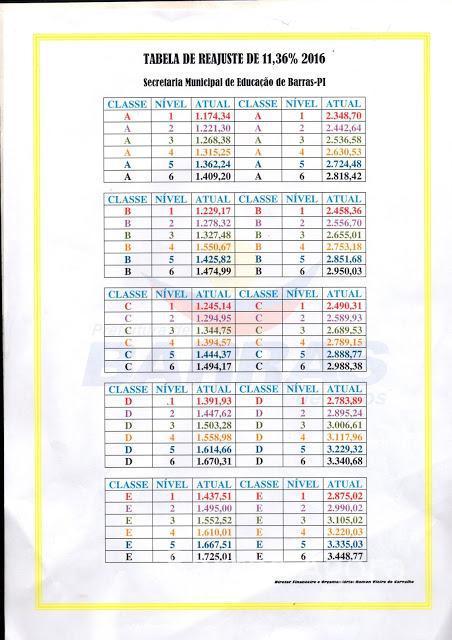 TABELA DE REAJUSTE DE 11,36% 2016
Secretaria Municipal de Educação de Barras-PI
CLASSE NÍVEL ATUAL CLASSE NÍVEL ATUAL
A 1 1.174,34 A 1 2.348,70
A 2 1.221,30 A 2 2.442,64
A 3 1.268,38 A 3 2.536,58
A 4 1.315,25 A 4 2.630,53
A 5 1.362,24 A 5 2.724,48
A 6 1.409,20 A 6 2.818,42
CLASSE NÍVEL ATUAL CLASSE NÍVEL ATUAL
B 1 1.229,17 B 1 2.458,36
B 2 1.278,32 B 2 2.556,70
B 3 1.327,48 B 3 2.655,01
B 4 1.550,67 B 4 2.753,18
B 5 1.425,82 B 5 2.851,68
B 6 1.474,99 B 6 2.950,03
CLASSE NÍVEL ATUAL CLASSE NÍVEL ATUAL
C 1 1.245,14 C 1 2.490,31
C 2 1.294,95 C 2 2.589,93
C 3 1.344,75 C 3 2.689,53
C 4 1.394,57 C 4 2.789,15
C 5 1.444,37 C 5 2.888,77
C 6 1.494,17 C 6 2.988,38
CLASSE NÍVEL ATUAL CLASSE NÍVEL ATUAL
D .1 1.391,93 D 1 2.783,89
D 2 1.447,62 D 2 2.895,24
D 3 1.503,28 D 3 3.006,61
D 4 1.558,98 D 4 3.117,96
D 5 1.614,66 D 5 3.229,32
D 6 1.670,31 D 6 3.340,68
CLASSE NÍVEL ATUAL CLASSE NÍVEL ATUAL
E 1 1.437,51 E 1 2.875,02
E 2 1.495,00 E 2 2.990,02
E 3 1.552,52 E 3 3.105,02
E 4 1.610,01 E 4 3.220,03
E 5 1.667,51 E 5 3.335,03
E 6 1.725,01 E 6 3.448,77
Diretor Financeiro e